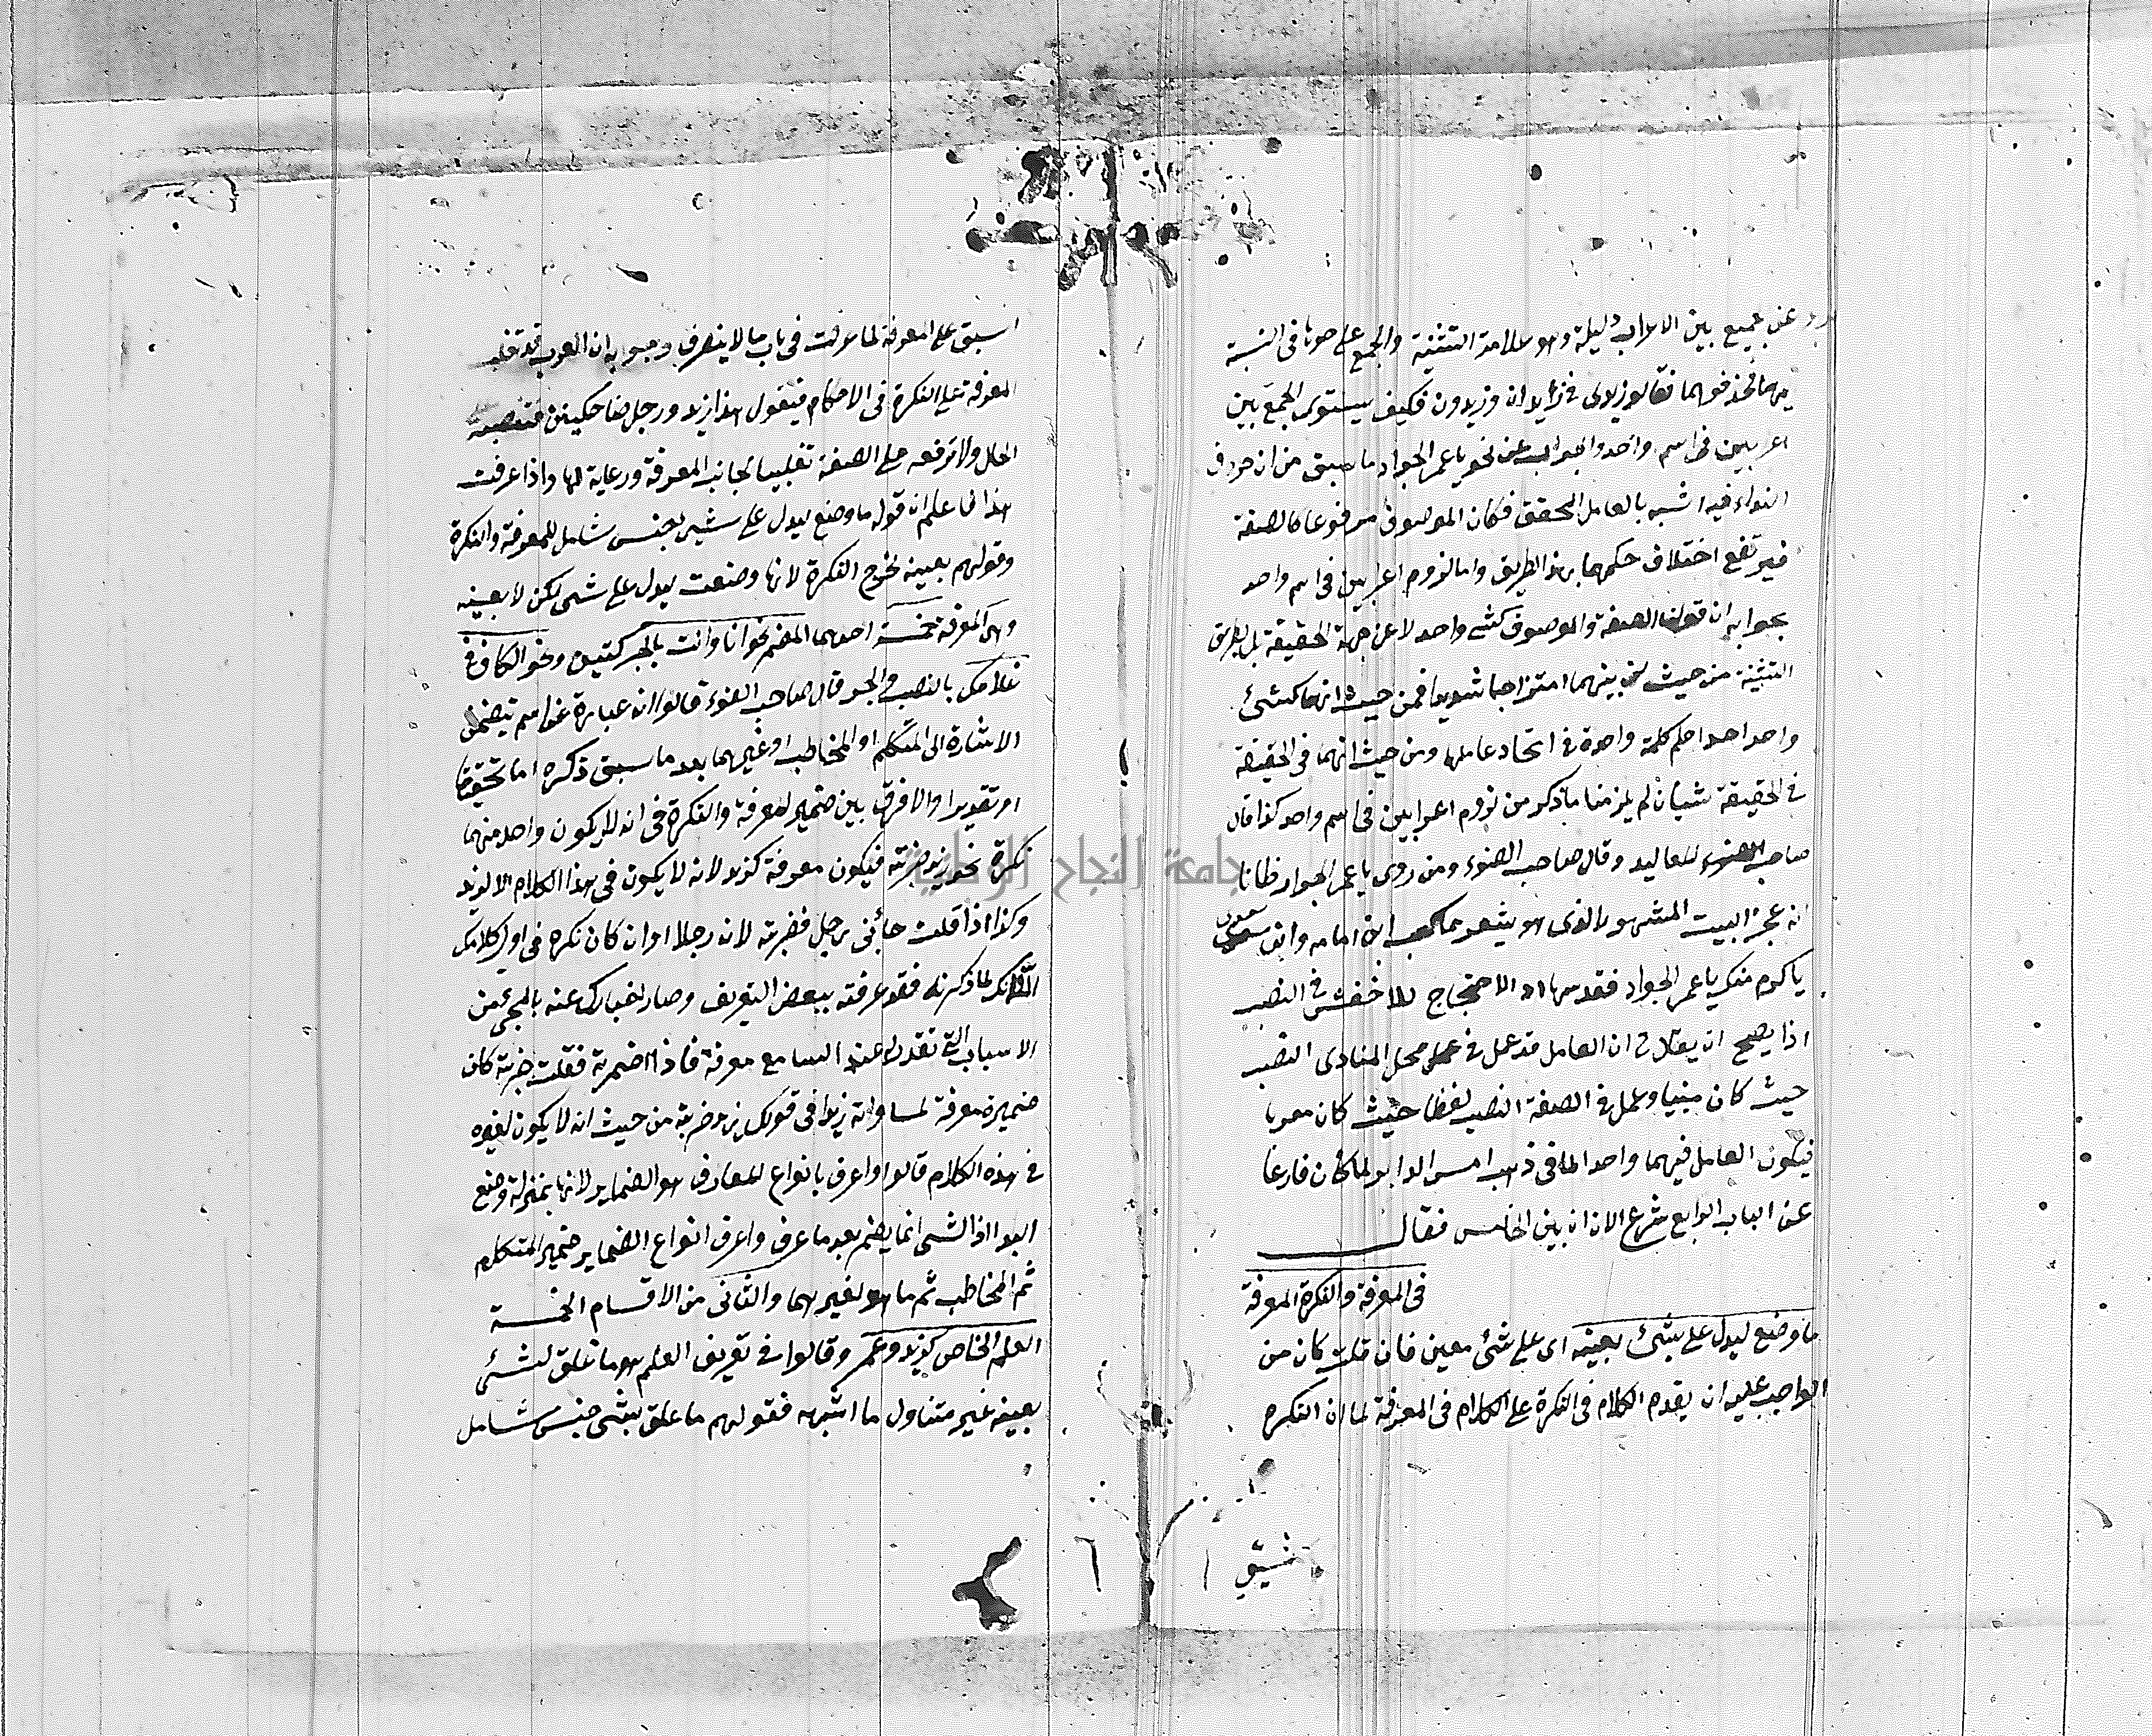 عن جميع بين الاعراب دليله وهو علامة التثنية والجمع على صوبا في النسبة
فحذفوهما فقالوا زيدى في زيدان وزيدون فكيف يستوى الجمع بين
اعرابين في اسم واحد والجواب عن نحو يا عمر الجواد ما سبق من ان حرف
النداء فيه اشبه بالعامل المحقق فكان الموصوف مرفوعا كالصفة
فيرتفع اختلاف حكمهما بهذا الطريق واما لزوم اعرابين في اسم واحد
بجوابه ان قولنا الصفة والموصوف كشئ واحد لا عن جهة الحقيقة بل بطريق
التثنية من حيث ان بينهما امتزاجا شديدا فمن حيث انهما كشئ
واحد احكم كلمة واحدة في اتحاد عاملها ومن حيث انهما في الحقيقة
في الحقيقة شيأن لم يلزمنا ما ذكر من لزوم اعرابين في اسم واحد كذا قال
صاحب الضوء وقال صاحب الضوء ومن روى يا عمر الجواد ظانا
انه عجز البيت المشهور الذى هو يشعر فما كعب ابن امامه وابن سعدى
باكرم منك يا عمر الجواد فقد سها اذ الاحتجاج للاخفش في النصب
اذا يصح ان يقال في ان العامل قد عمل في محل المنادى النصب
حيث كان مبنيا وعمل في الصفة النصب لفظا حيث كان معربا
فيكون العامل فيهما واحد ولما كان فارغا
عن الباب الرابع شرع الان ان بين الخامس فقال
في المعرفة والنكرة المعرفة
ما وضع ليدل على شئ بعينه اى على شئ معين فان قلت كان من
الواجب عليه ان يقدم الكلام في النكرة على الكلام في المعرفة لما ان النكرة
اسبق على المعرفة لما عرفت في باب ما لا ينصرف وجوابه ان العرب قد تغلب
المعرفة على النكرة في الاحكام فيقول هذا زيد ورجل ضاحكين فتنصبه
الحال ولا ترفعه على الصفة تغليبا لجانب المعرفة ورعاية لها واذا عرفت
هذا فاعلم ان قوله ما وضع ليدل على شئ جنس شامل للمعرفة والنكرة
وقولهم بعينه تخرج النكرة لانها وضعت ليدل على شئ لكن لا بعينه
وهى المعرفة خمسة احدهما المضمر نحو انا وانت ونحو الكاف في
غلامك بالنصب والجر قال صاحب الضوء قالوا انه عبارة عن اسم يتضمن
الاشارة الى المتكلم او المخاطب او غيرهما بعد ما سبق ذكره اما تحقيقا
او تقديرا ولا فرق بين ضمير المعرفة والنكرة في انه لا يكون واحد منهما
نكرة نحو زيد ضربته فيكون معرفة كزيد لانه لا يكون في هذا الكلام الا لزيد
وكذا اذا قلت جأنى رجل فضربته لان رجلا وان كان نكرة في اول كلامك
الا انك لما ذكرته فقد عرفته ببعض التعريف وصار اخبارك عنه بالمجئ من
الاسباب التي تقدر له عند السامع معرفة فاذا اضمرته فقلت ضربته كان
ضميره معرفة لمساواته زيدا في قولك زيد ضربته من حيث انه لا يكون لغيره
في هذه الكلام قالوا واعرف بانواع المعارف هو الضماير لانها بمنزلة وضع
اليد اذ الشئ انما يضمر بعد ما عرف واعرف انواع الضماير ضمير المتكلم
ثم المخاطب ثم ما هو لغيرهما والثانى من الاقسام الخمسة
العلم الخاص كزيد وعمر وقالوا في تعريف العلم هو ما علق لشئ
بعينه غير متناول ما اشبهه فقولهم ما علق بشئ جنس شامل
جامعة النجاح الوطنية